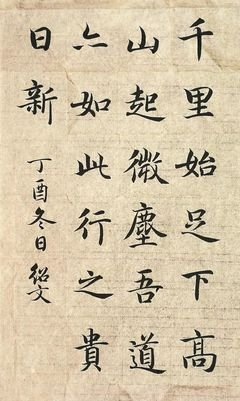 千里始足下高
山起微塵吾道
亦如此行之貴
日新
丁酉冬日紹文